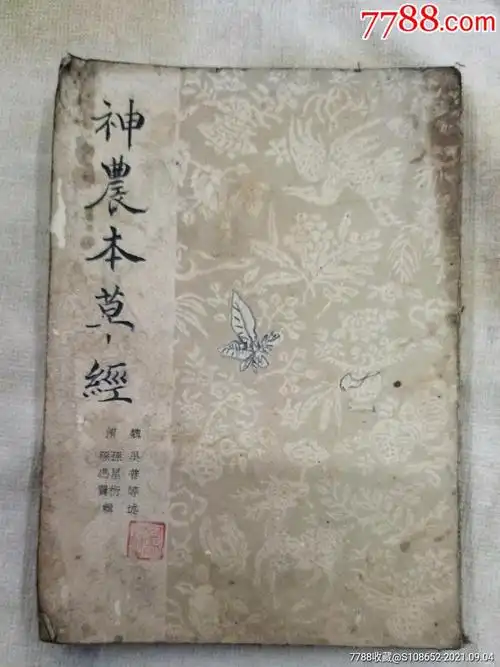 7788.com
神農本草經
魏 吳普等述
清 孫星衍
孫馮翼 輯
7788收藏@S108652-2021.09.04